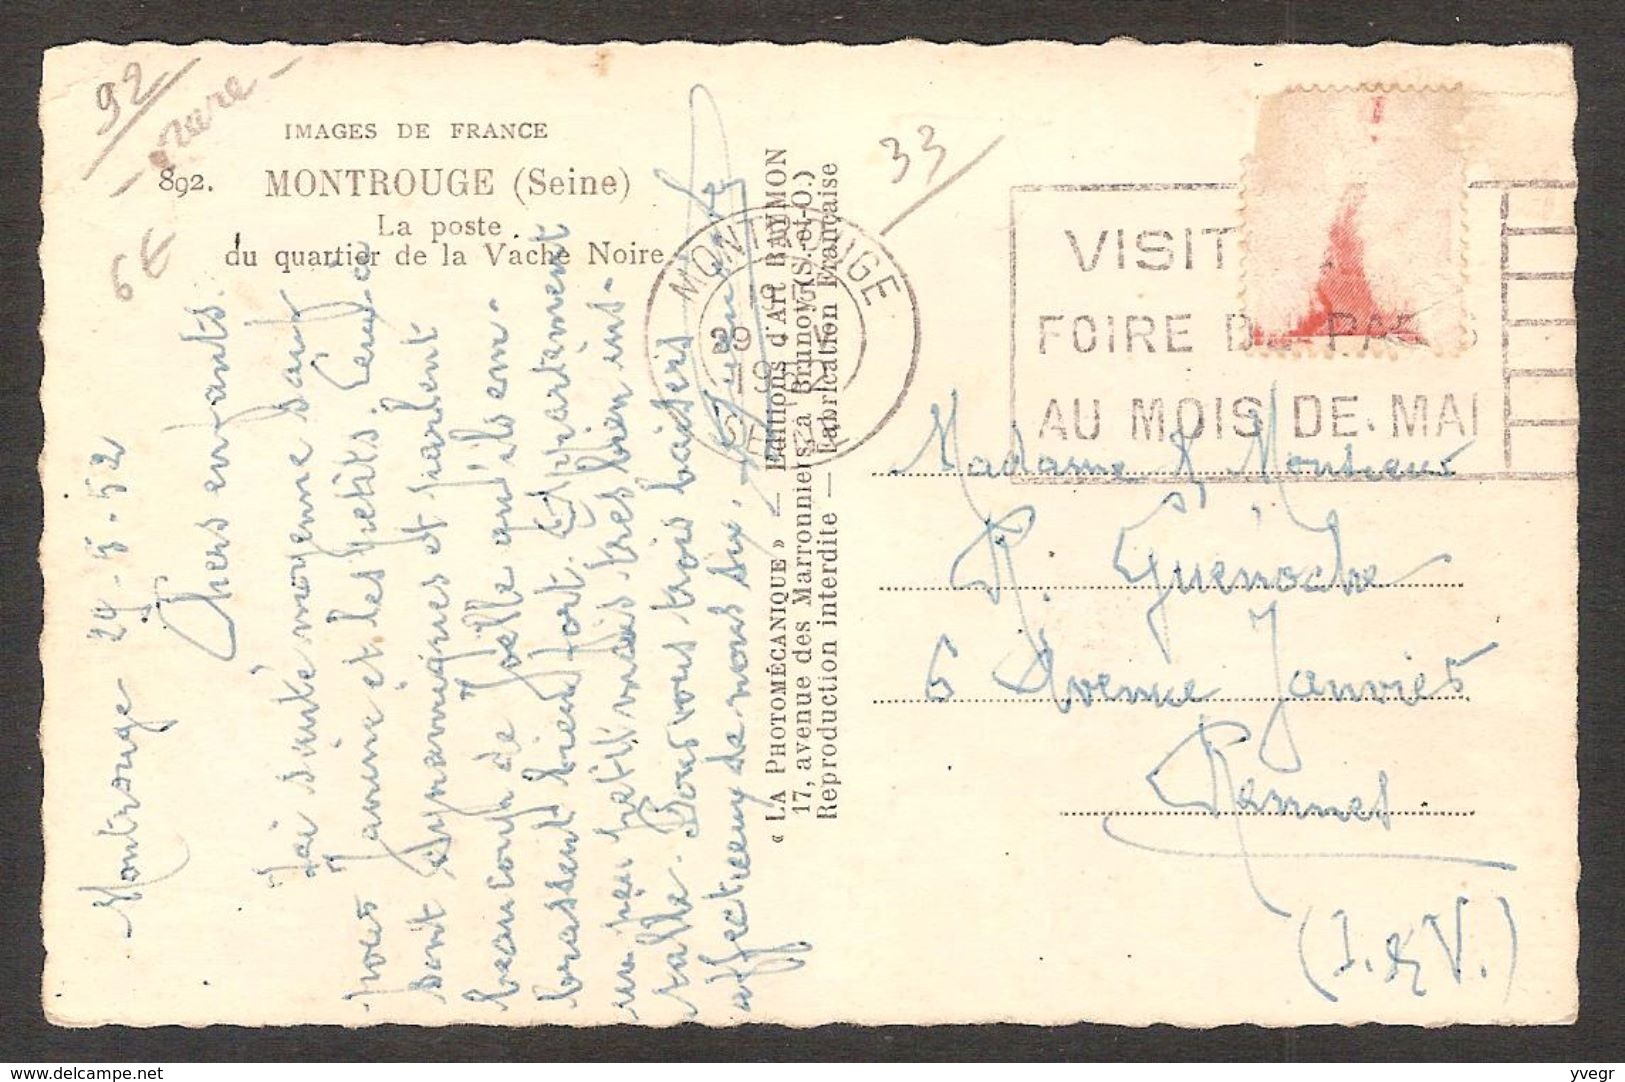 92
- rare -
6€
33
IMAGES DE FRANCE
892. MONTROUGE (Seine)
La poste
du quartier de la Vache Noire.
MONTROUGE
19 30
29 - 5
SEINE
VISIT
FOIRE DE PARIS
AU MOIS DE MAI
« LA PHOTOMÉCANIQUE » — Editions d'Art RAYMON
17, avenue des Marronniers à Brunoy (S.-et-O.)
Reproduction interdite — Fabrication Française
Montrouge 29-5-52
Chers enfants.
J'ai santé moyenne sauf
pour Janine et les petits. Ceux-ci
sont dynamiques et parlent
beaucoup de Joëlle qu'ils em-
brassent bien fort. Appartement
un peu petit mais très bien ins-
tallé. Bons vous trois baisers
affectueux de nous six.
Madame & Monsieur
R. Guénoche
6 Avenue Janvier
Rennes
(I. & V.)
delcampe.net
yvegr